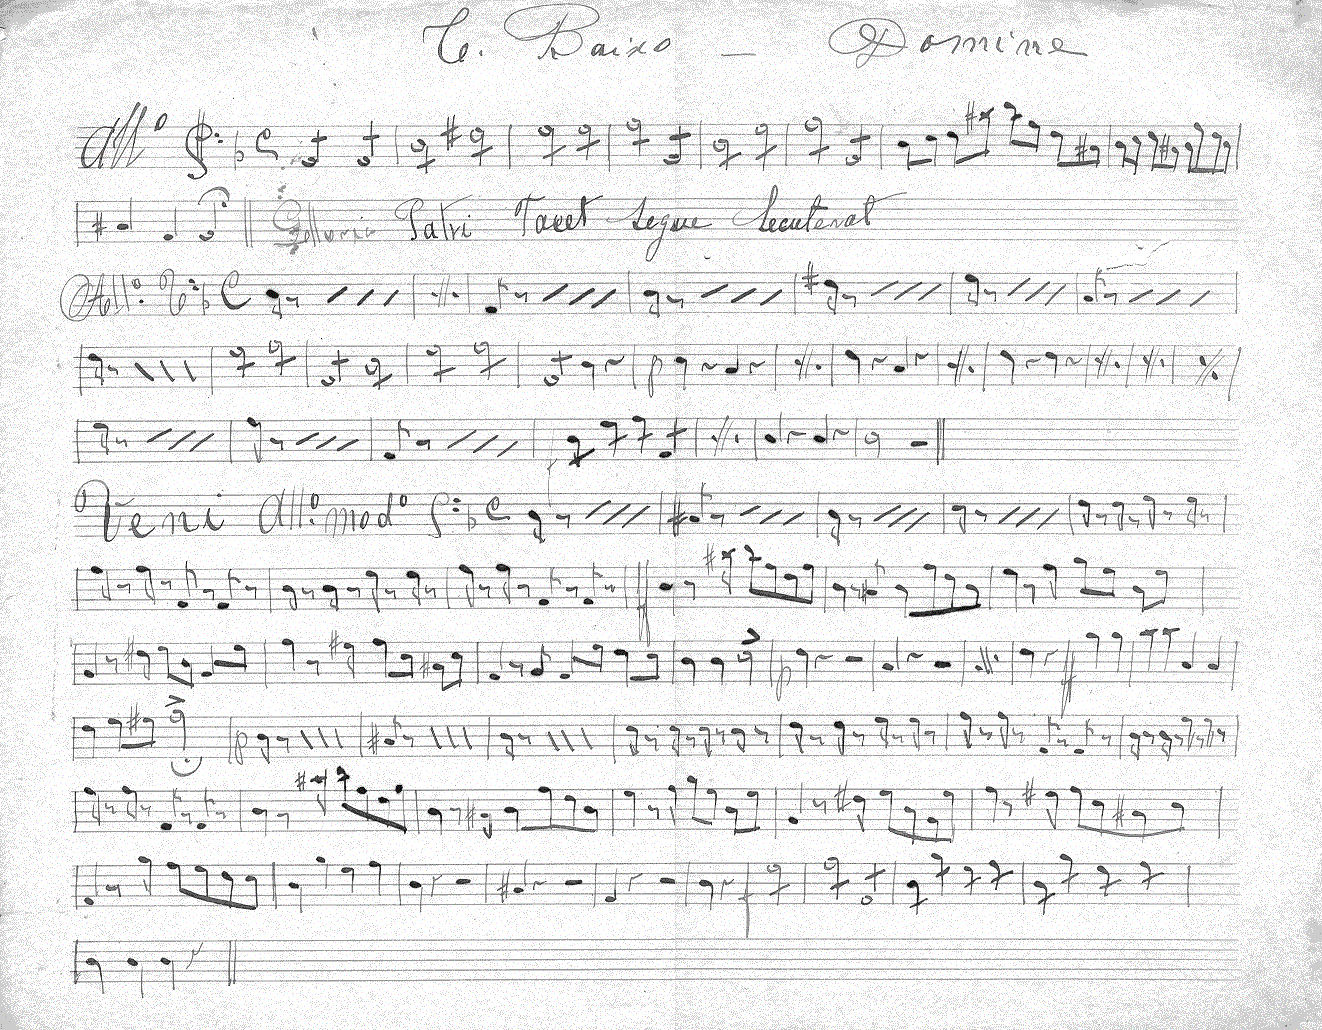 C. Baixo — Domine
All.º
Gloria Patri Tacet segue Secuterat
All.º
p
Veni All.º mod.º
ff
p ff
p
f